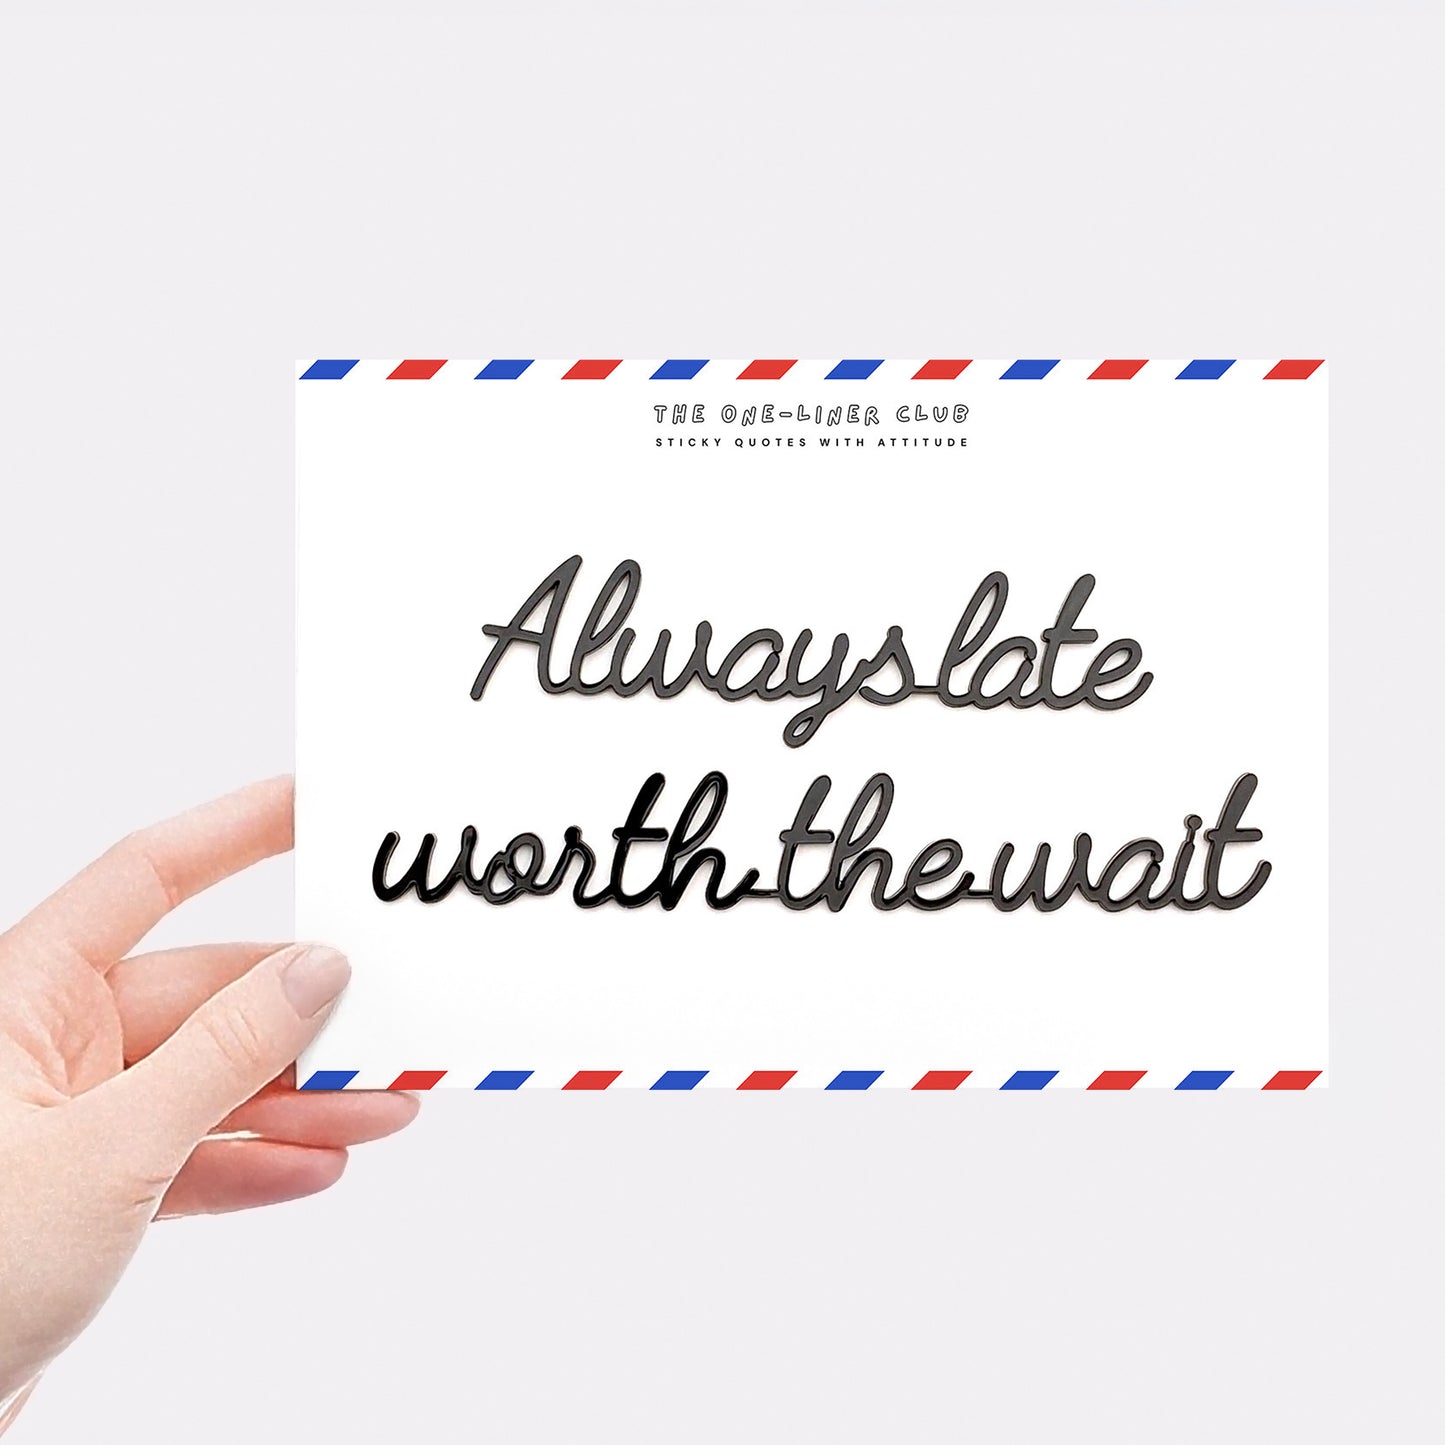 THE ONE-LINER CLUB
STICKY QUOTES WITH ATTITUDE
Always late
worth the wait